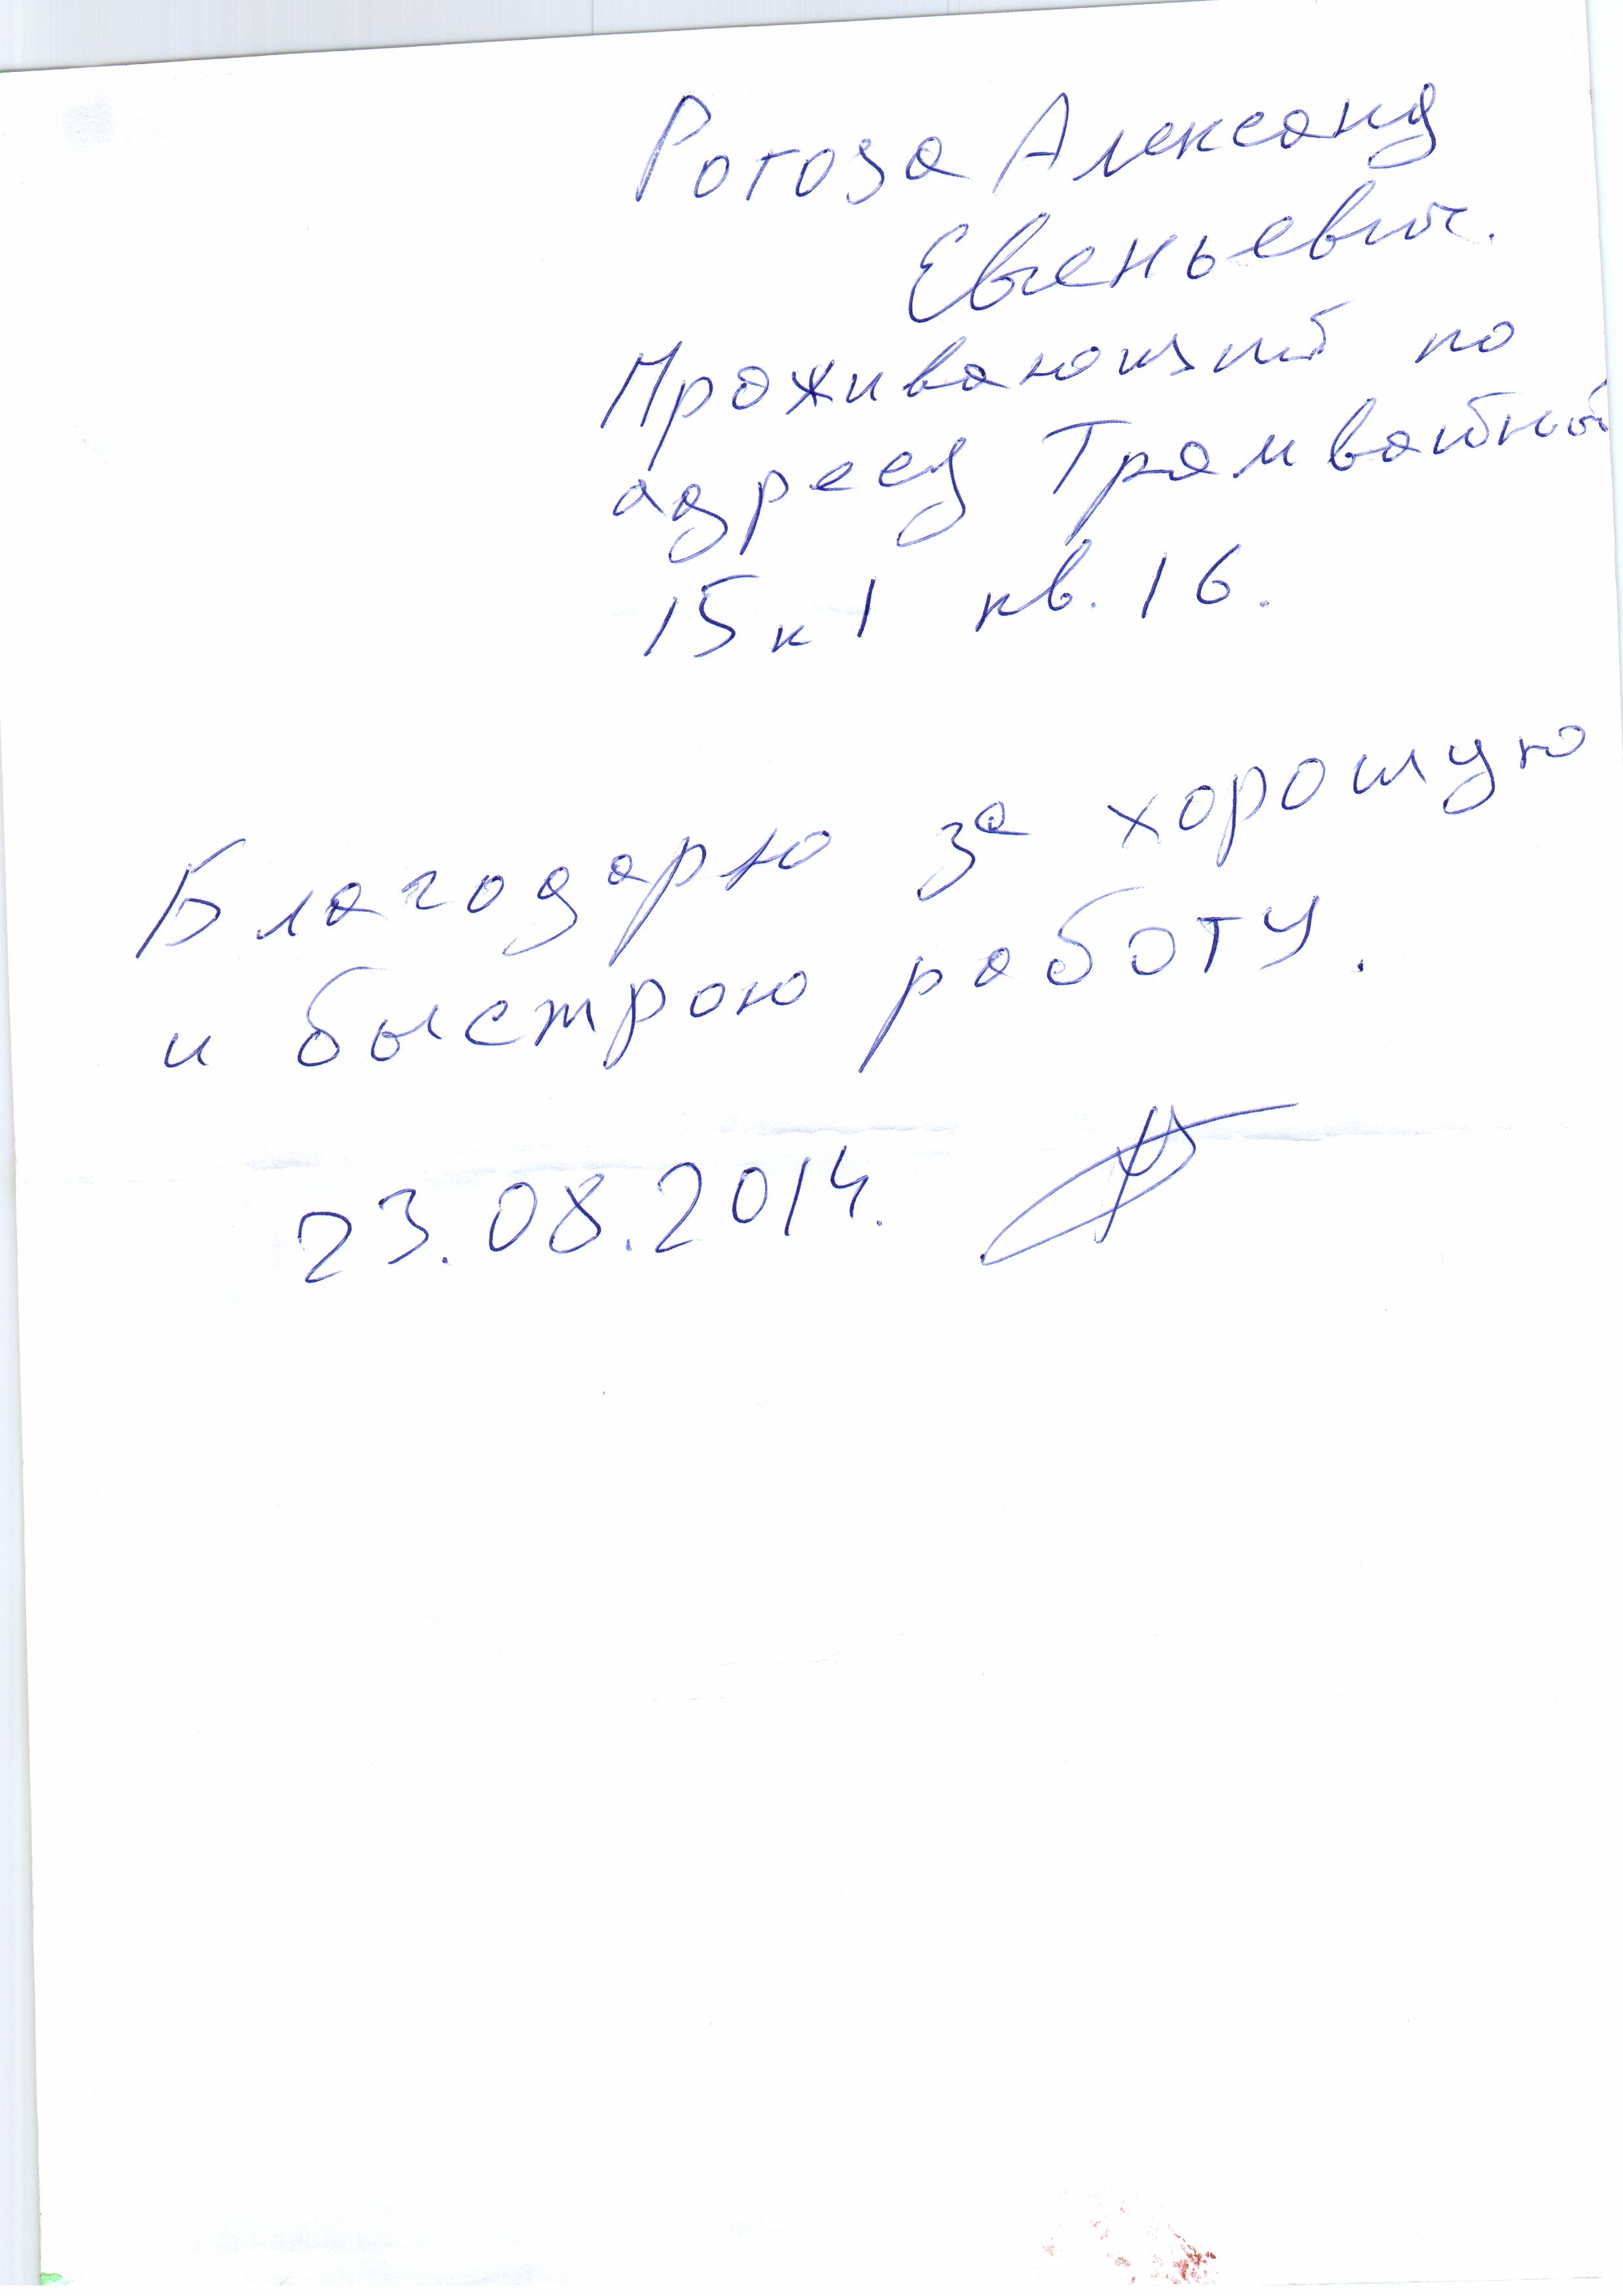 Рогоза Александ
Евгеньевич.
Проживающий по
адресу Трамвайной
15 к 1 кв. 16.
Благодарю за хорошую
и быстрою работу.
23.08.2014.